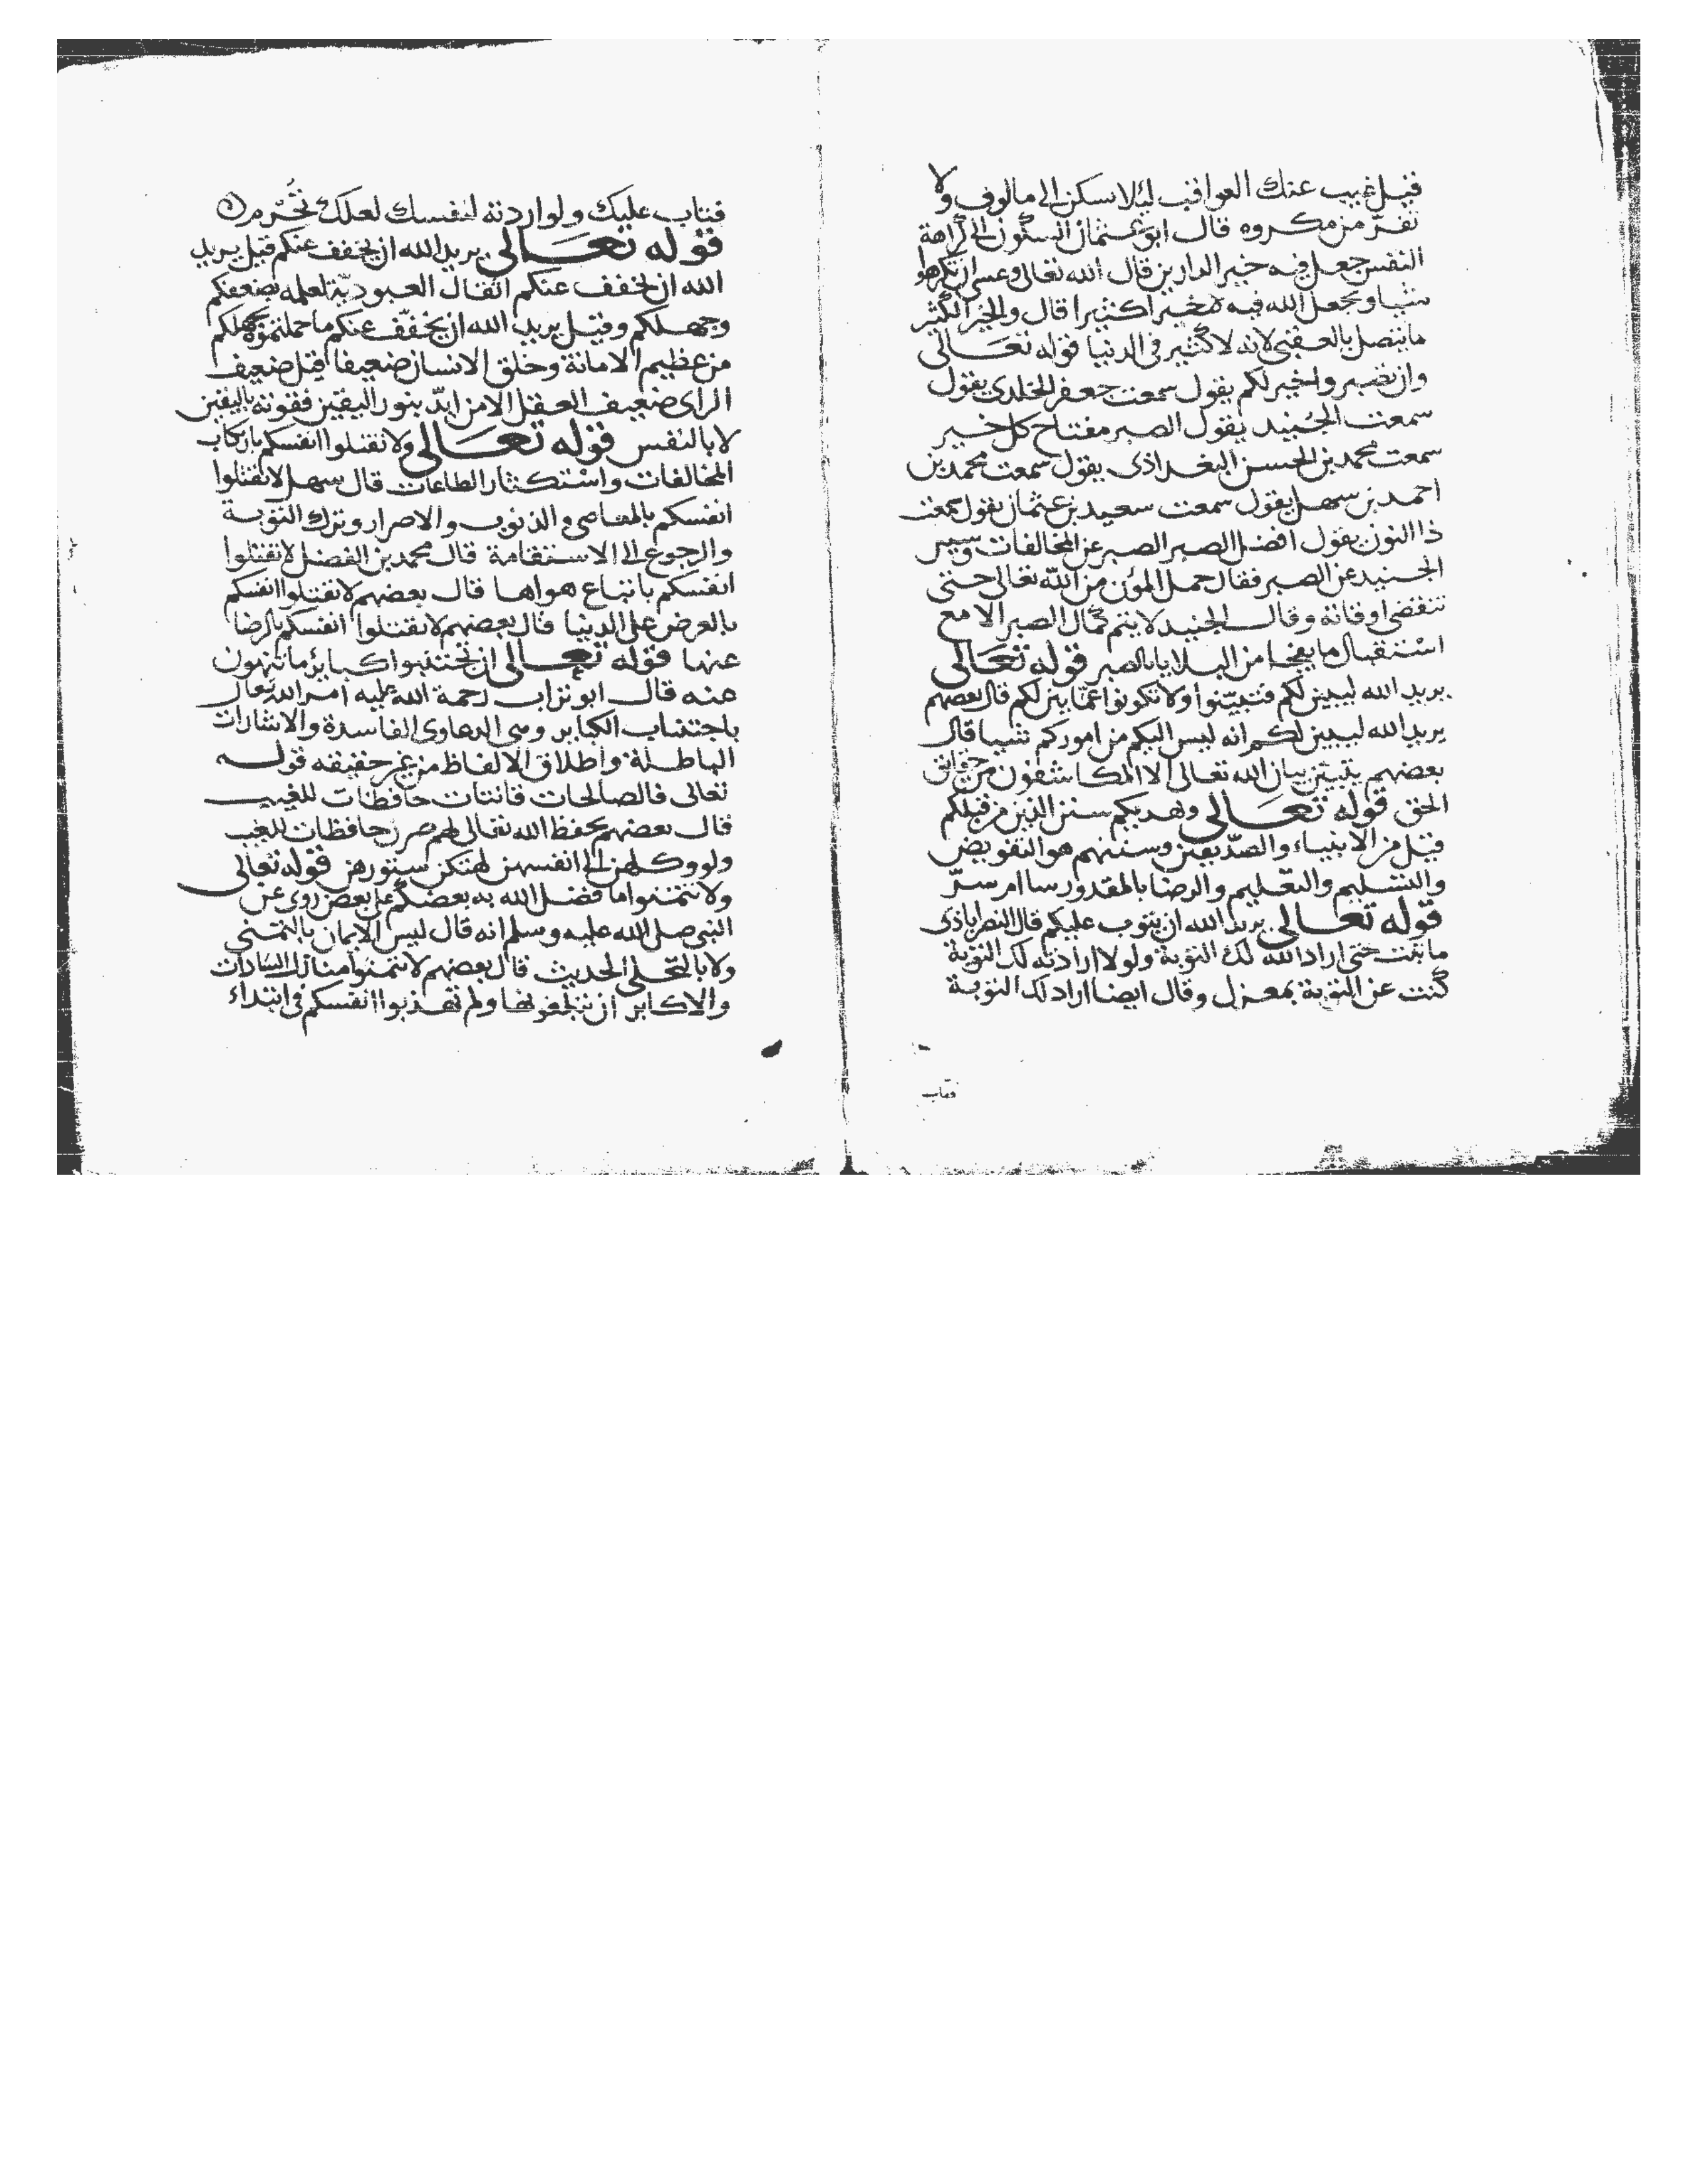 قيل غيب عنك العواقب ليلا تسكن الى مالوف ولا
تفرّ من مكروه قال ابو عثمان السكون الى كراهة
النفس جعل فيه خير الدارين قال الله تعالى وعسى ان تكرهوا
شيا ويجعل الله فيه خيرا كثيرا قال والخير الكثير
ما يتصل بالعقبى لانه لا كثير في الدنيا قوله تعالى
وان تصبروا خير لكم يقول سمعت جعفر الخلدي يقول
سمعت الجنيد يقول الصبر مفتاح كل خير
سمعت محمد بن الحسن البغداذى يقول سمعت محمد بن
احمد بن سهل يقول سمعت سعيد بن عثمان يقول سمعت
ذا النون يقول افضل الصبر الصبر عن المخالفات وسير
الجنيد عن الصبر فقال حمل المؤن من الله تعالى حتى
تنقضي اوقاته وقال الجنيد لا يتم كمال الصبر الا مع
استقبال ما يفجا من البلايا بالصبر قوله تعالى
يريد الله ليبين لكم فتبيّنوا ولا تكونوا عمّا يبن لكم قال بعضهم
يريد الله ليبين لكم انه ليس اليكم من اموركم شيا قال
بعضهم يتبيّن بيان الله تعالى الا المكاشفون من حقائق
الحق قوله تعالى ويهديكم سنن الذين من قبلكم
قيل من الانبياء والصدّيقين وسننهم هو التفويض
والتسليم والتعليم والرضا بالمقدور سا ام سرّ
قوله تعالى يريد الله ان يتوب عليكم قال النصراباذى
ما تبت حتى اراد الله لك التوبة ولولا ارادته لك التوبة
كنت عن التوبة بمعزل وقال ايضا اراد لك التوبة
فتاب
فتاب عليك ولو اردته لنفسك لعلك تحرم
قوله تعالى يريد الله ان يخفف عنكم قيل يريد
الله ان يخفف عنكم اثقال العبوديّة لعلمه بضعفكم
وجهلكم وقيل يريد الله ان يخفّف عنكم ما حملتموه بجهلكم
من عظيم الامانة وخلق الانسان ضعيفا قيل ضعيف
الراى ضعيف العقل الا من ايّد بنور اليقين فقوته باليقين
لا بالنفس قوله تعالى ولا تقتلوا انفسكم بارتكاب
المخالفات واستكثار الطاعات قال سهل لا تقتلوا
انفسكم بالمعاصى والذنوب والاصرار وترك التوبة
والرجوع الى الاستقامة قال محمد بن الفضل لا تقتلوا
انفسكم باتباع هواها قال بعضهم لا تقتلوا انفسكم
بالعرض على الدنيا قال بعضهم لا تقتلوا انفسكم بالرضا
عنها قوله تعالى ان تجتنبوا كباير ما تنهون
عنه قال ابو تراب رحمة الله عليه امر الله تعالى
باجتناب الكباير وهى الدعاوى الفاسدة والاشارات
الباطلة واطلاق الالفاظ من غير حقيقه قوله
تعالى فالصالحات قانتات حافظات للغيب
قال بعضهم بحفظ الله تعالى لهم صرن حافظات للغيب
ولو وكلهن الى انفسهن لهتكن ستورهن قوله تعالى
ولا تتمنوا ما فضل الله به بعضكم على بعض روى عن
النبى صلى الله عليه وسلم انه قال ليس الايمان بالتمني
ولا بالتحلى الحديث قال بعضهم لا تتمنوا منازل السادات
والاكابر ان تبلغونها ولم تهذبوا انفسكم في ابتداء